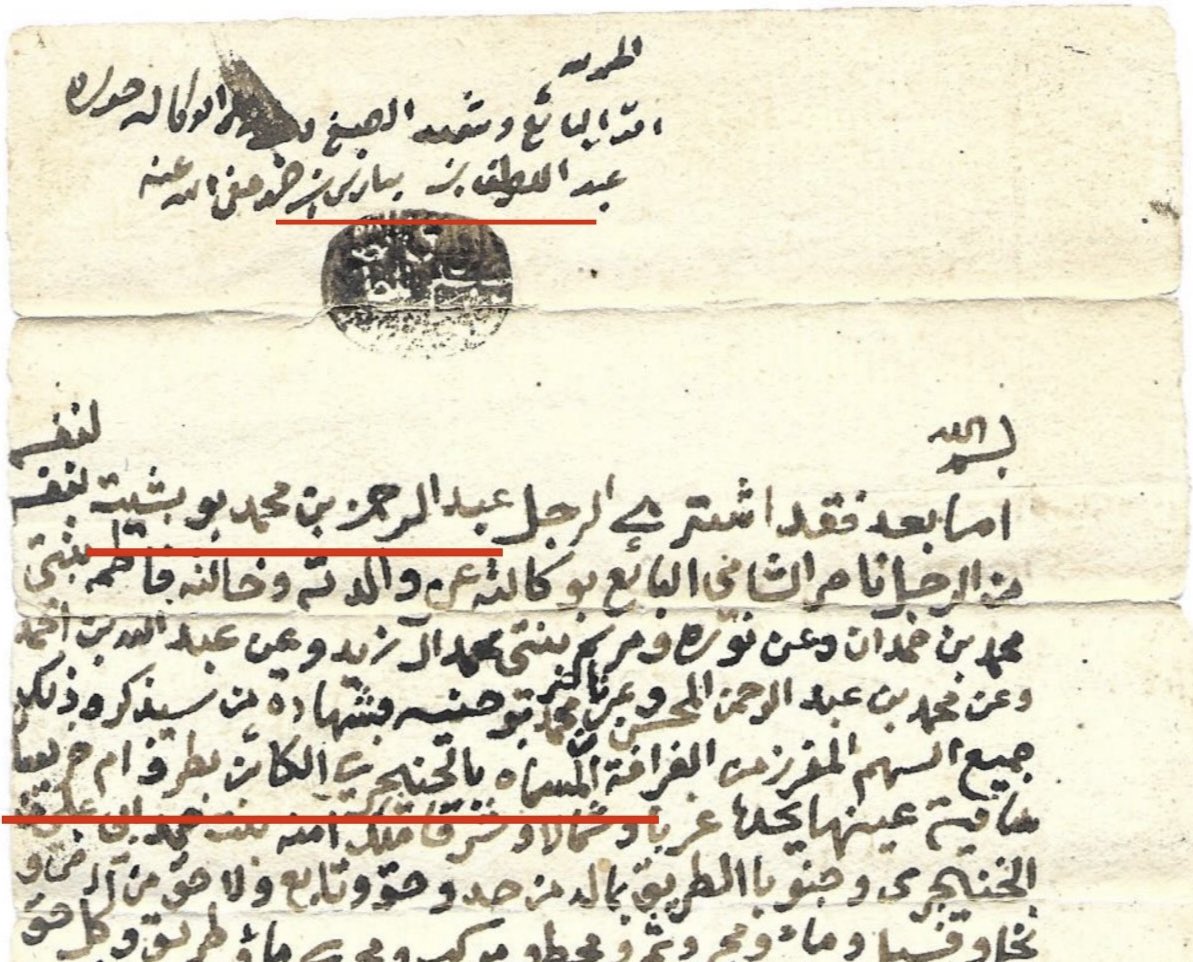 الحمد لله
اقر البايع وشهيد الصيغ الوكاله حرره
عبد اللطيف بن مبارك عفى الله عنه
بسم الله
لنفسه
اما بعد فقد اشترى الرجل عبد الرحمن بن محمد بو بشيت لنفسه
من الرجل ناصر الشامي البائع بوكالته عن والدته وخالته فاطمه بنتي
محمد بن حمدان وعن نوره ومريم بنتي محمد ال زيد وعن عبد الله بن احمد
وعن محمد بن عبد الرحمن المحسن وعن محمد بشهادة من سيذكر وذلك
جميع السهم المفرز من الغرافة المسماه بالخنيجريه الكائن بطرف ام خريسا
ساقية عينها يحدها غربا وشمالا وشرقا ملك آمنه بنت
الخنيجرى وجنوبا الطريق بماله من حد وحق وتابع ولاحق من ارض و
نخل وفسيل وماء وممر ومجرى ماء وطريق وكل حق